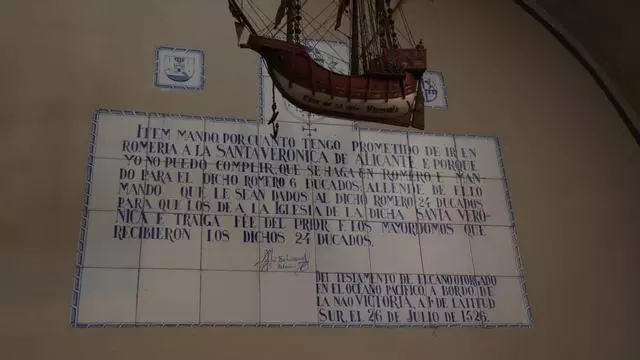 ITEM MANDO, POR CUANTO TENGO PROMETIDO DE IR EN
ROMERIA A LA SANTA VERONICA DE ALICANTE E PORQUE
YO NO PUEDO COMPLIR, QUE SE HAGA UN ROMERO E MAN-
DO PARA EL DICHO ROMERO 6 DUCADOS; ALLENDE DE ELLO
MANDO QUE LE SEAN DADOS AL DICHO ROMERO 24 DUCADOS
PARA QUE LOS DE A LA IGLESIA DE LA DICHA SANTA VERÓ-
NICA E TRAIGA FÉE DEL PRIOR E LOS MAYORDOMOS QUE
RECIBIERON LOS DICHOS 24 DUCADOS.
DEL TESTAMENTO DE ELCANO OTORGADO
EN EL OCEANO PACIFICO, A BORDO DE
LA NAO VICTORIA, A 1º DE LATITUD
SUR, EL 26 DE JULIO DE 1526.